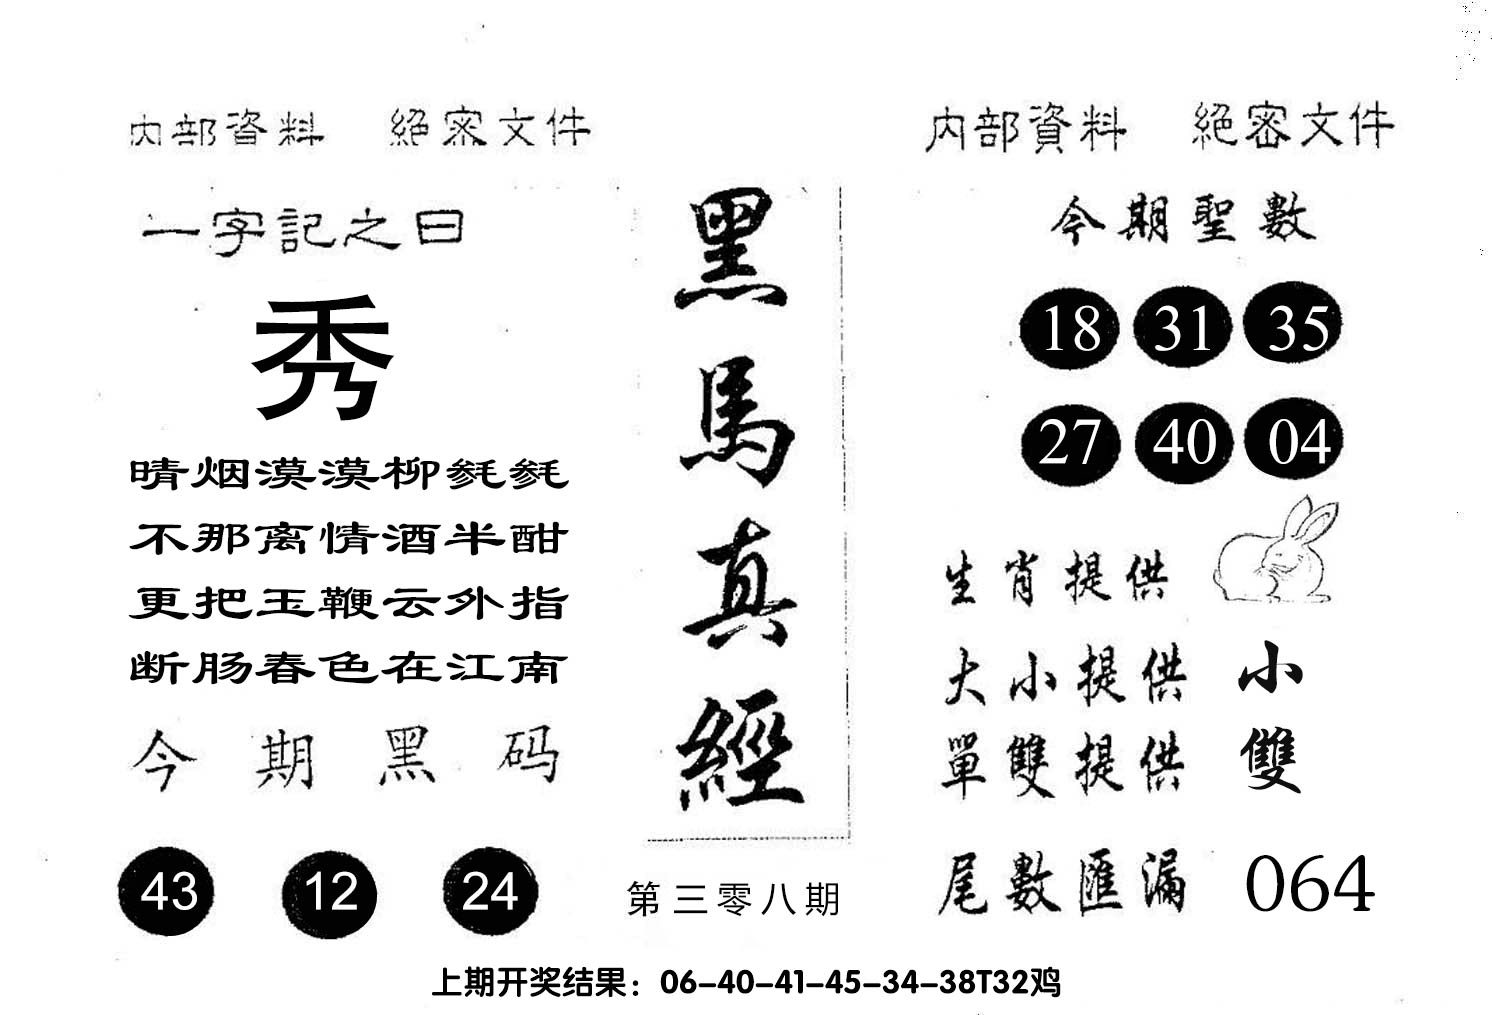 内部資料　絕密文件
一字記之曰
秀
晴烟漠漠柳毿毿
不那离情酒半酣
更把玉鞭云外指
断肠春色在江南
今期黑码
43 12 24
黑馬真經
第三零八期
内部資料　絕密文件
今期聖數
18 31 35
27 40 04
生肖提供
大小提供 小
單雙提供 雙
尾數匯漏 064
上期开奖结果：06-40-41-45-34-38T32鸡